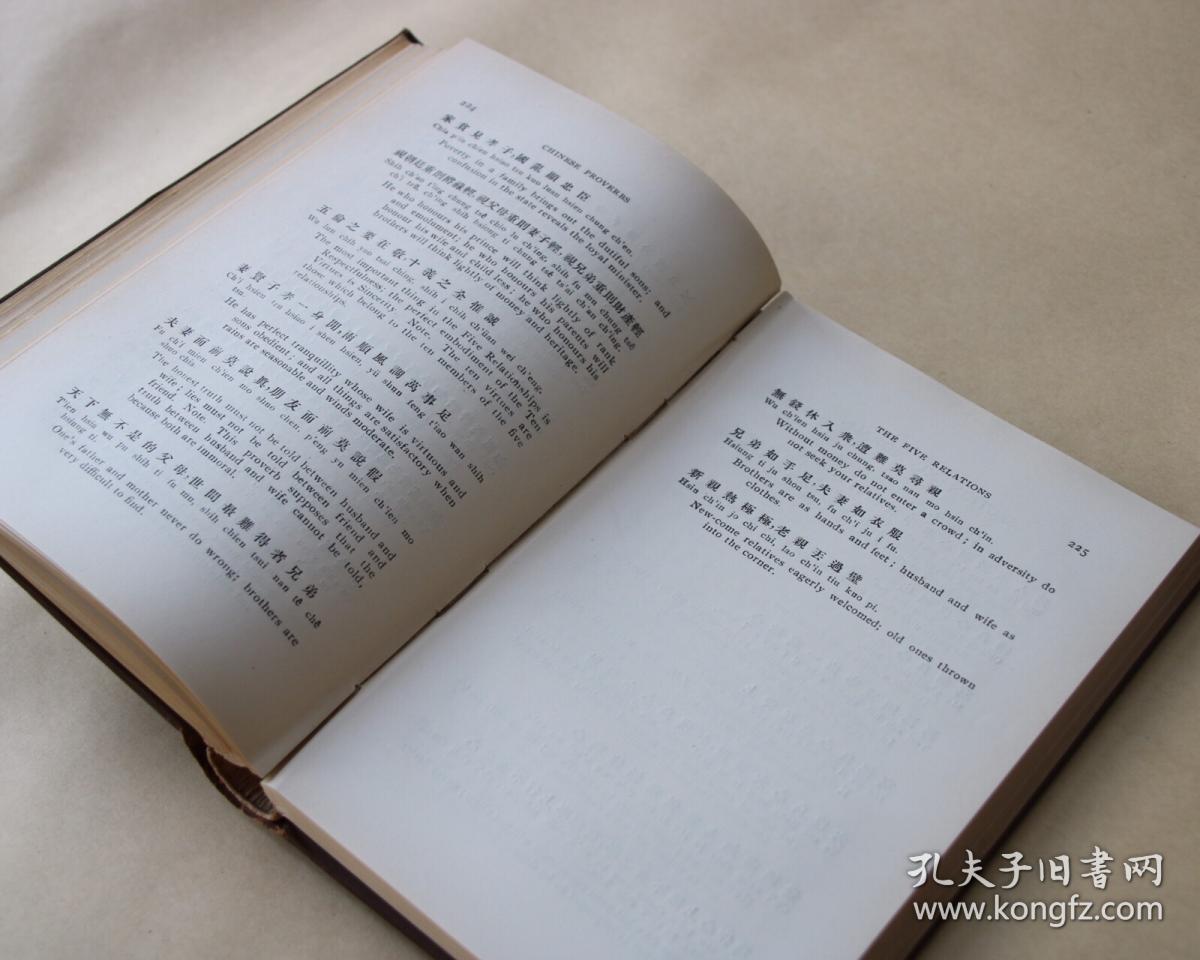 224
CHINESE PROVERBS
家貧見孝子,國亂顯忠臣
Chia p'in chien hsiao tzu kuo luan hsien chung ch'en.
Poverty in a family brings out the dutiful sons; and
confusion in the state reveals the loyal minister.
視朝廷重則爵祿輕,視父母重則妻子輕,視兄弟重則財產輕
Shih ch'ao t'ing chung tsê chio lu ch'ing, shih fu mu chung tsê
ch'i tzŭ ch'ing shih hsiung ti chung tsê ts'ai ch'an ch'ing.
He who honours his prince will think lightly of rank
and emolument; he who honours his parents will
honour his wife and child less; he who honours his
brothers will think lightly of money and heritage.
五倫之要在敬,十義之全惟誠
Wu lun chih yao tsai ching, shih i chih ch'üan wei ch'eng.
The most important thing in the Five Relationships is
Respectfulness; the perfect embodiment of the Ten
Virtues is Sincerity. Note. The ten virtues are
those which belong to the ten members of the five
relationships.
妻賢子孝一身閒,雨順風調萬事足
Ch'i hsien tzu hsiao i shen hsien, yü shun feng t'iao wan shih
tsu.
He has perfect tranquillity whose wife is virtuous and
sons obedient; and all things are satisfactory when
rains are seasonable and winds moderate.
夫妻面前莫說眞,朋友面前莫說假
Fu ch'i mien ch'ien mo shuo chen, p'eng yu mien ch'ien mo
shuo chia
The honest truth must not be told between husband and
wife; lies must not be told between friend and
friend. Note. This proverb supposes that the
truth between husband and wife cannot be told,
because both are immoral.
天下無不是的父母,世間最難得者兄弟
T'ien hsia wu pu shih ti fu mu, shih chien tsui nan tê chê
hsiung ti.
One's father and mother never do wrong; brothers are
very difficult to find.
THE FIVE RELATIONS
225
無錢休入衆,遭難莫尋親
Wu ch'ien hsiu ju chung, tsao nan mo hsin ch'in.
Without money do not enter a crowd; in adversity do
not seek your relatives.
兄弟如手足,夫妻如衣服
Hsiung ti ju shou tsu, fu ch'i ju i fu.
Brothers are as hands and feet; husband and wife as
clothes.
新親熱極極,老親丟過壁
Hsin ch'in jo chi chi, lao ch'in tiu kuo pi.
New-come relatives eagerly welcomed; old ones thrown
into the corner.
孔夫子旧书网
www.kongfz.com